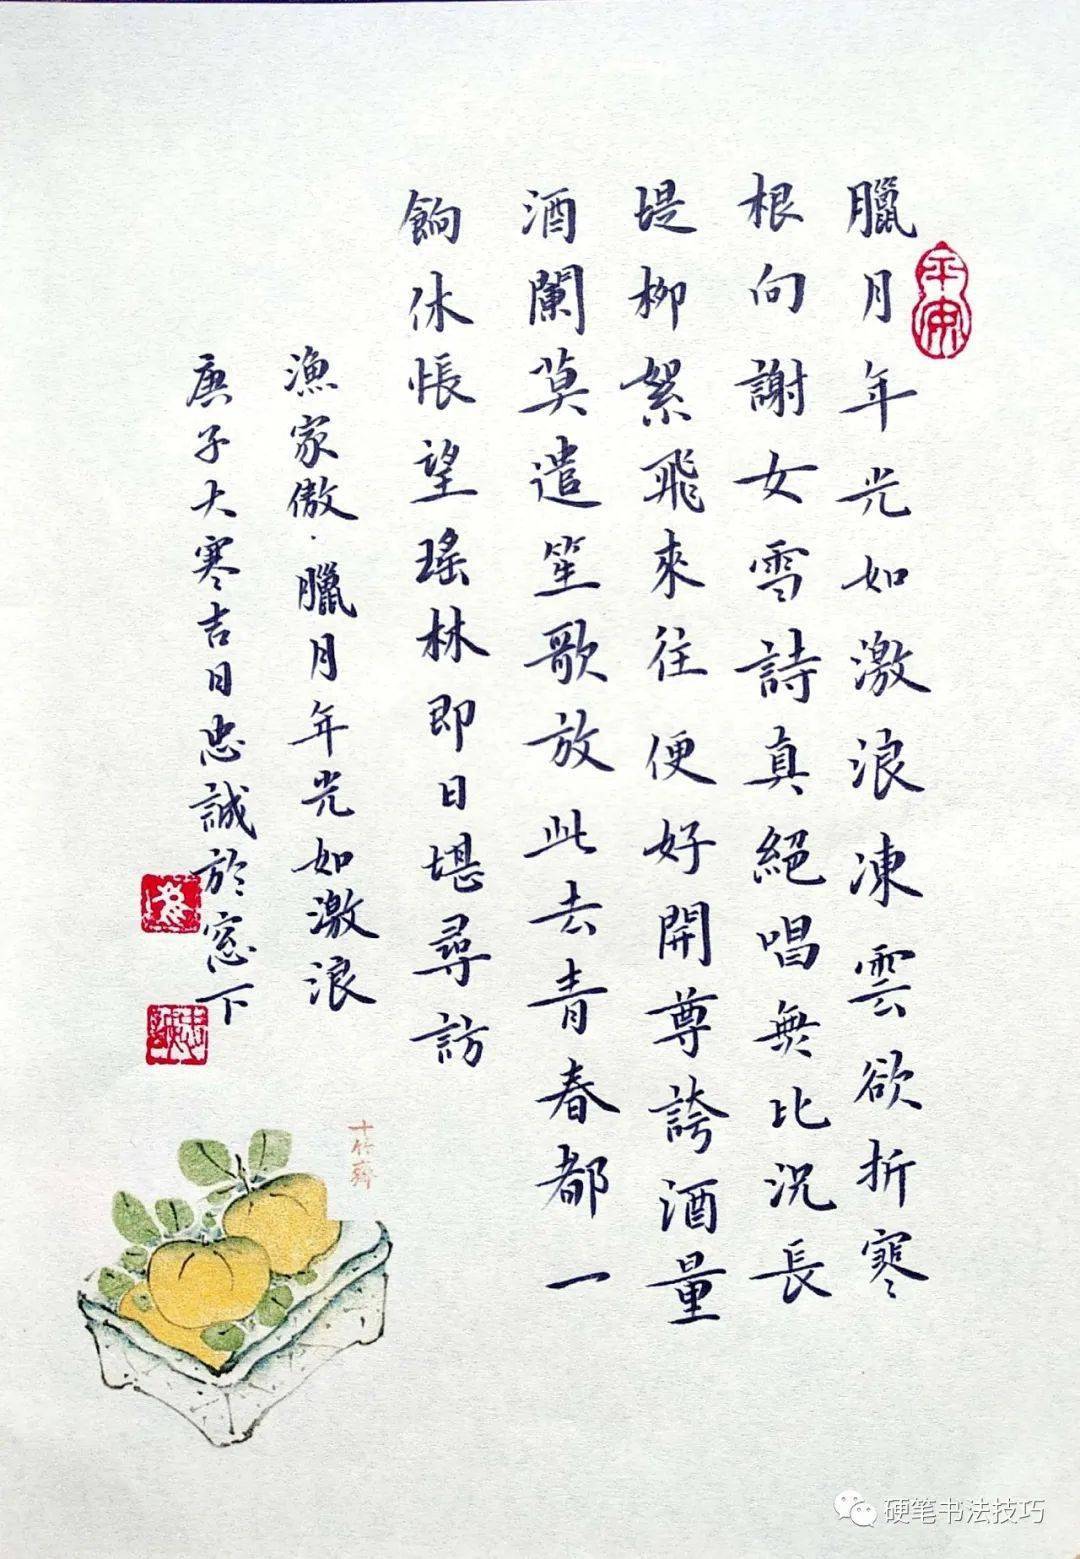 臘月年光如激浪凍雲欲折寒
根向謝女雪詩真絕唱無比況長
堤柳絮飛來往便好開尊誇酒量
酒闌莫遣笙歌放此去青春都一
餉休悵望瑤林即日堪尋訪
漁家傲·臘月年光如激浪
庚子大寒吉日忠誠於窓下
平安
忠誠
十竹齋
硬笔书法技巧